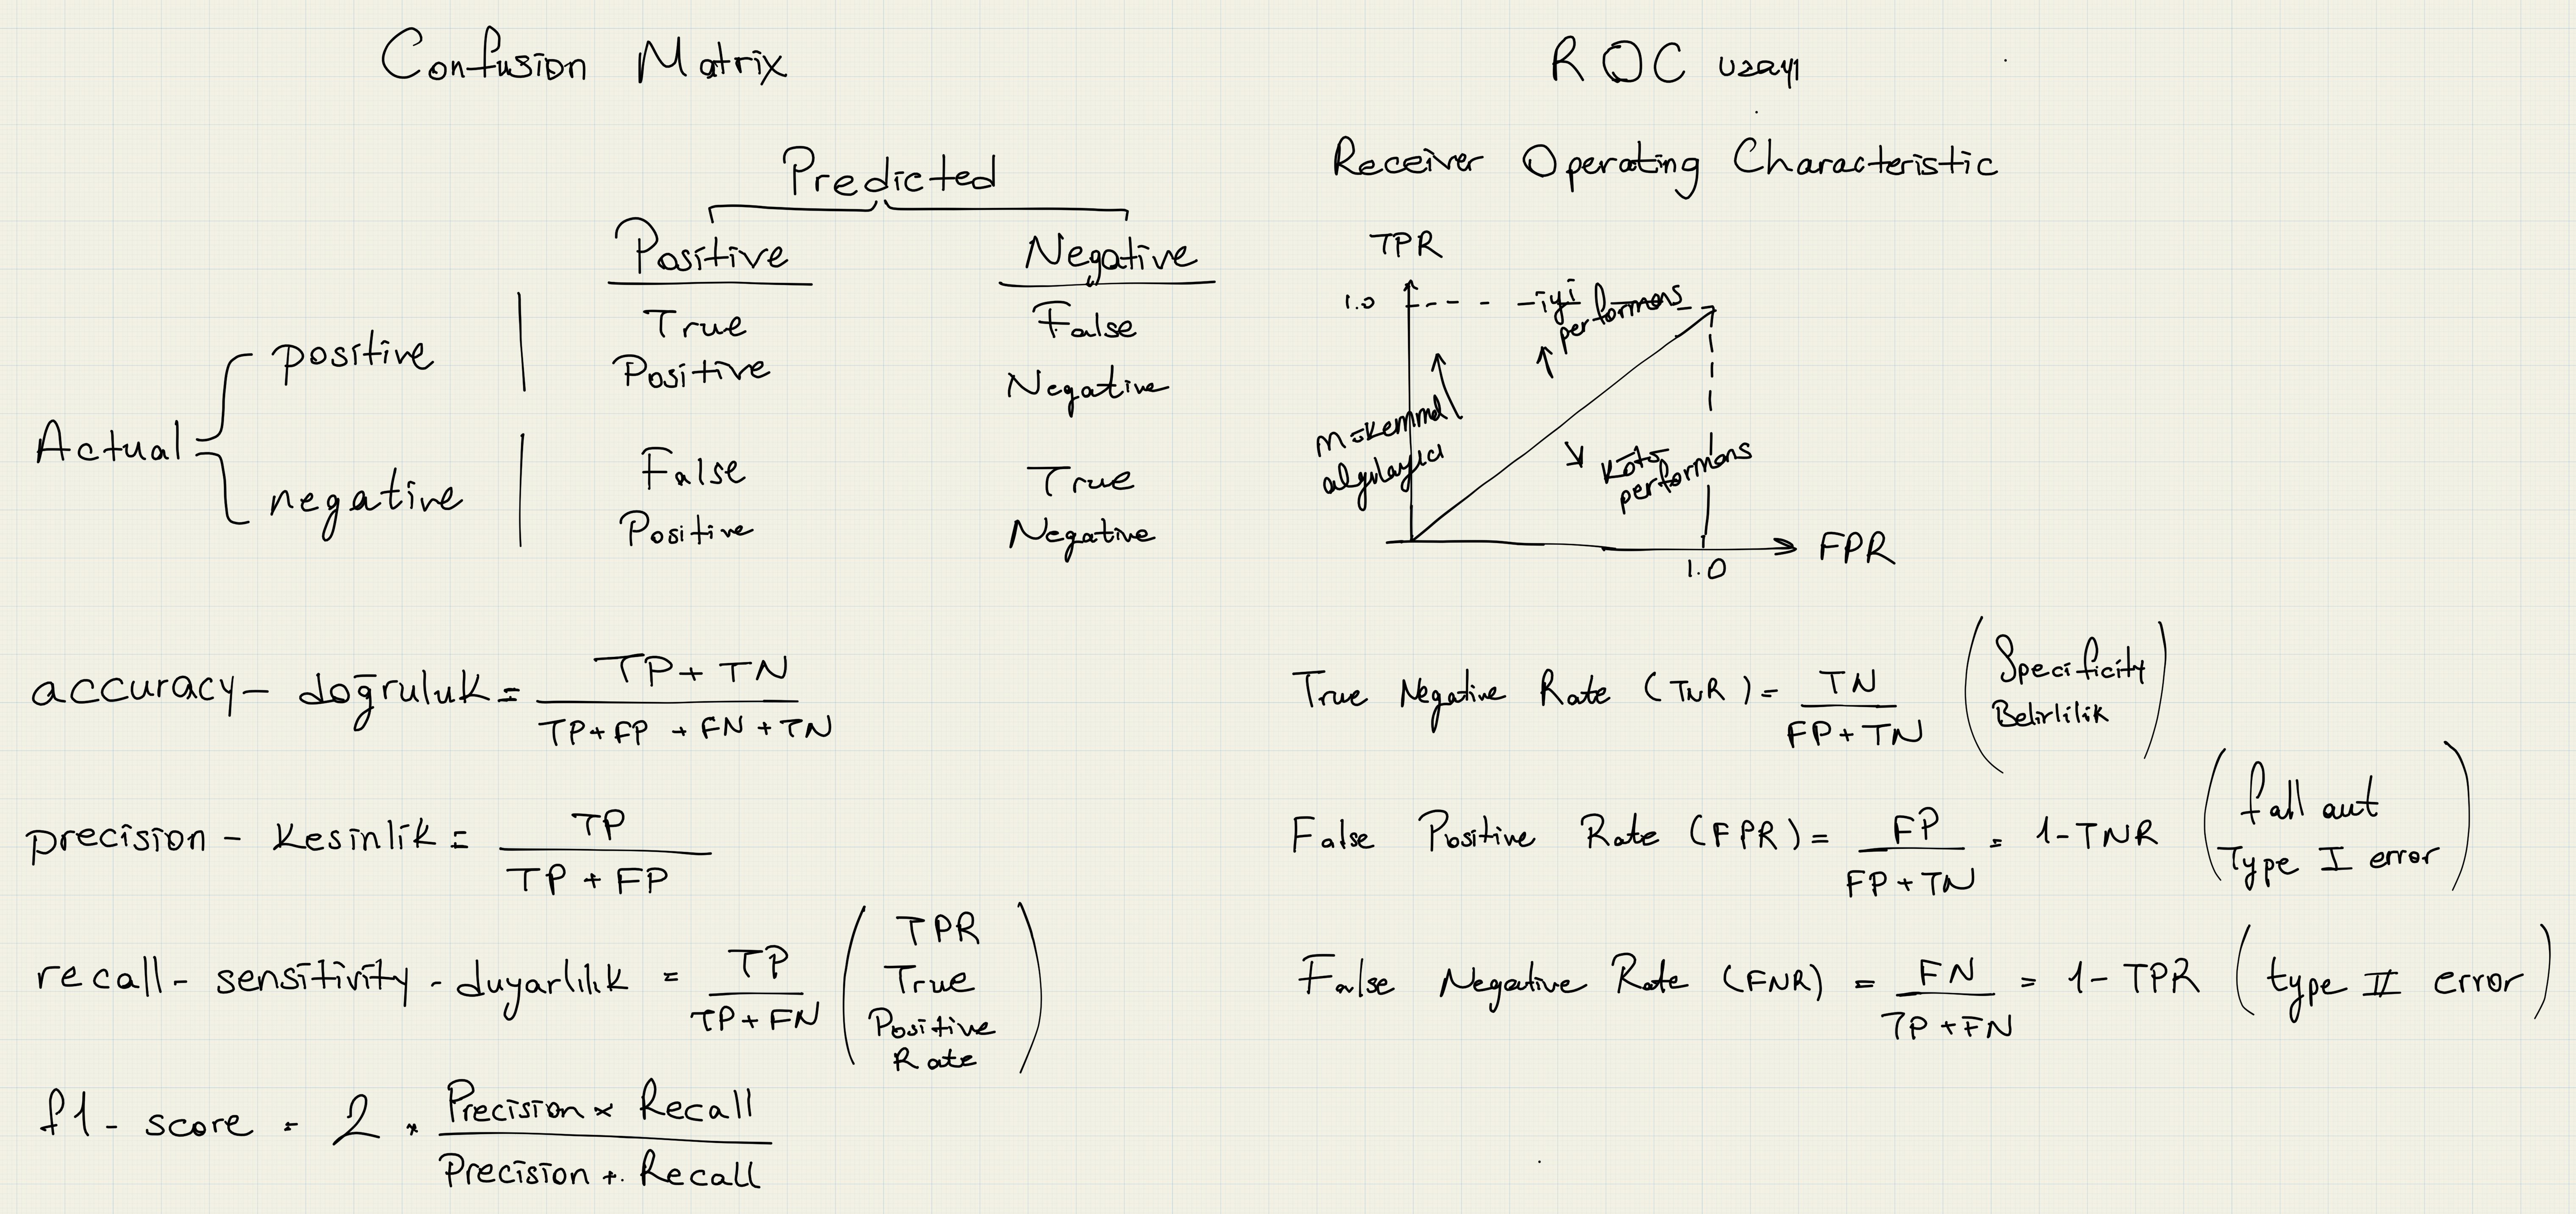 Confusion Matrix
Predicted
Positive Negative
Actual
positive
True Positive
False Negative
negative
False Positive
True Negative
accuracy - doğruluk = TP + TN / TP + FP + FN + TN
precision - Kesinlik = TP / TP + FP
recall - sensitivity - duyarlılık = TP / TP + FN ( TPR True Positive Rate )
f1 - score = 2 * Precision x Recall / Precision + Recall
ROC uzayı
Receiver Operating Characteristic
TPR
1.0
iyi performans
mükemmel algılayıcı
kötü performans
1.0
FPR
True Negative Rate (TNR) = TN / FP + TN ( Specificity Belirlilik )
False Positive Rate (FPR) = FP / FP + TN = 1 - TNR ( fall aut Type I error )
False Negative Rate (FNR) = FN / TP + FN = 1 - TPR ( type II error )